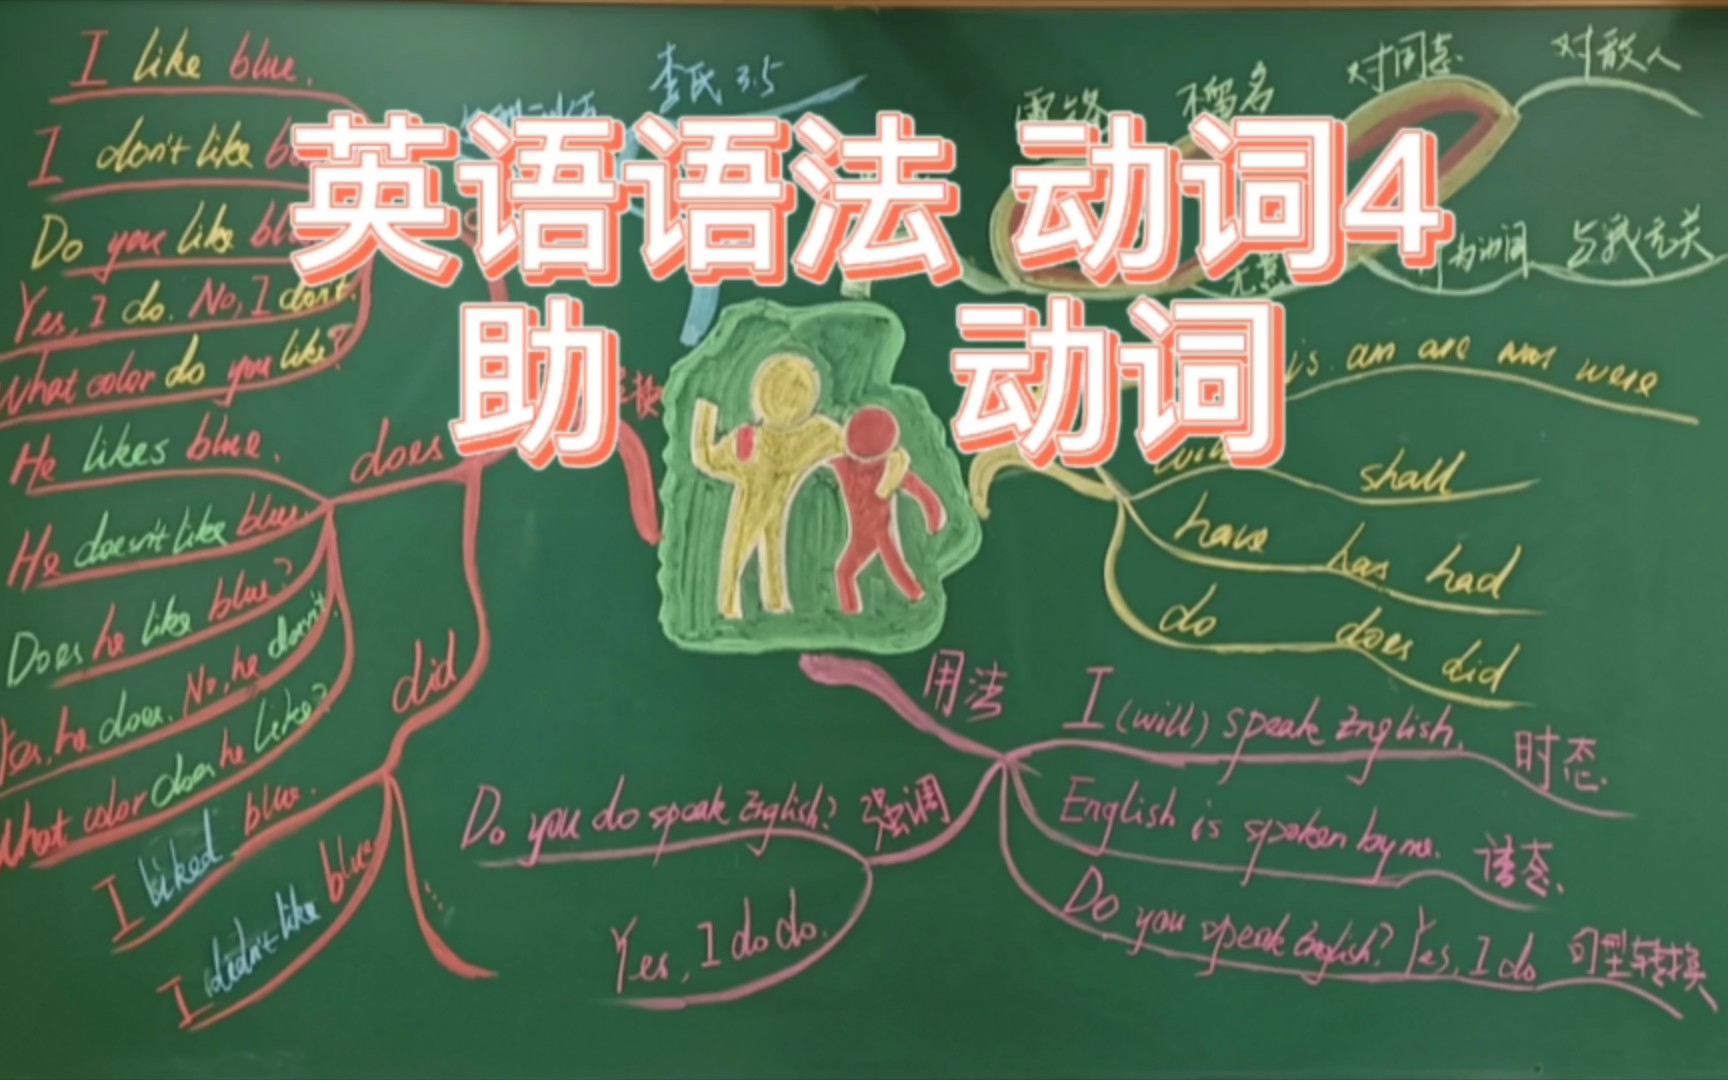 英语语法 动词4
助 动词
I like blue.
I don't like
Do you like
Yes, I do. No, I don't.
What color do you like?
He likes blue.
He doesn't like blue.
Does he like blue?
Yes, he does. No, he
What color does he like?
does
did
I liked blue.
I didn't like blue
李氏 3.5
不留名
对同志
对敌人
与我无关
is am are was were
shall
have has had
do does did
用法
I (will) speak English. 时态.
English is spoken by me. 语态.
Do you speak English? Yes, I do 句型转换
Do you do speak English? 强调
Yes, I do do.